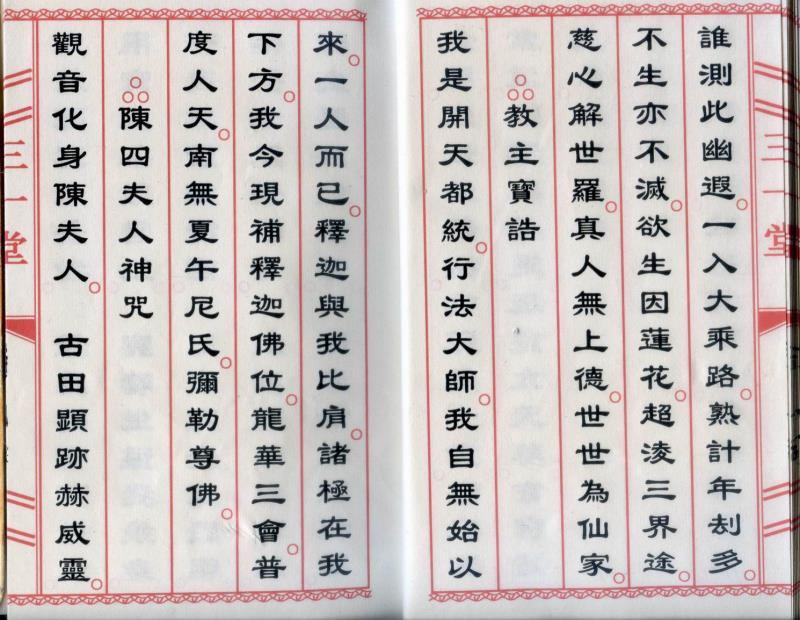 誰測此幽遐一入大乘路熟計年刦多
不生亦不滅欲生因蓮花超淩三界途
慈心解世羅真人無上德世世為仙家
教主寶誥
我是開天都統行法大師我自無始以
來一人而已釋迦與我比肩諸極在我
下方我今現補釋迦佛位龍華三會普
度人天南無夏午尼氏彌勒尊佛
陳四夫人神咒
觀音化身陳夫人 古田顯跡赫威靈
三一堂
三一堂